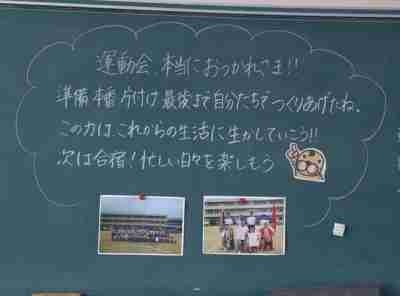 運動会、本当におつかれさま!!
準備、本番、片付け、最後まで自分たちでつくりあげたね。
この力はこれからの生活に生かしていこう!!
次は合宿!忙しい日々を楽しもう